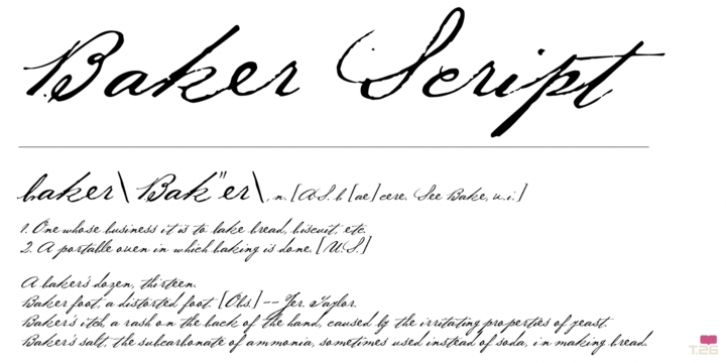 Baker Script
baker\ Bak"er\, n. [AS. b[ae]cere. See Bake, v. i.]
1. One whose business it is to bake bread, biscuit, etc.
2. A portable oven in which baking is done. [U.S.]
A baker's dozen, thirteen.
Baker foot, a distorted foot. [Obs.] -- Jer. Taylor.
Baker's itch, a rash on the back of the hand, caused by the irritating properties of yeast.
Baker's salt, the subcarbonate of ammonia, sometimes used instead of soda, in making bread.
T.26